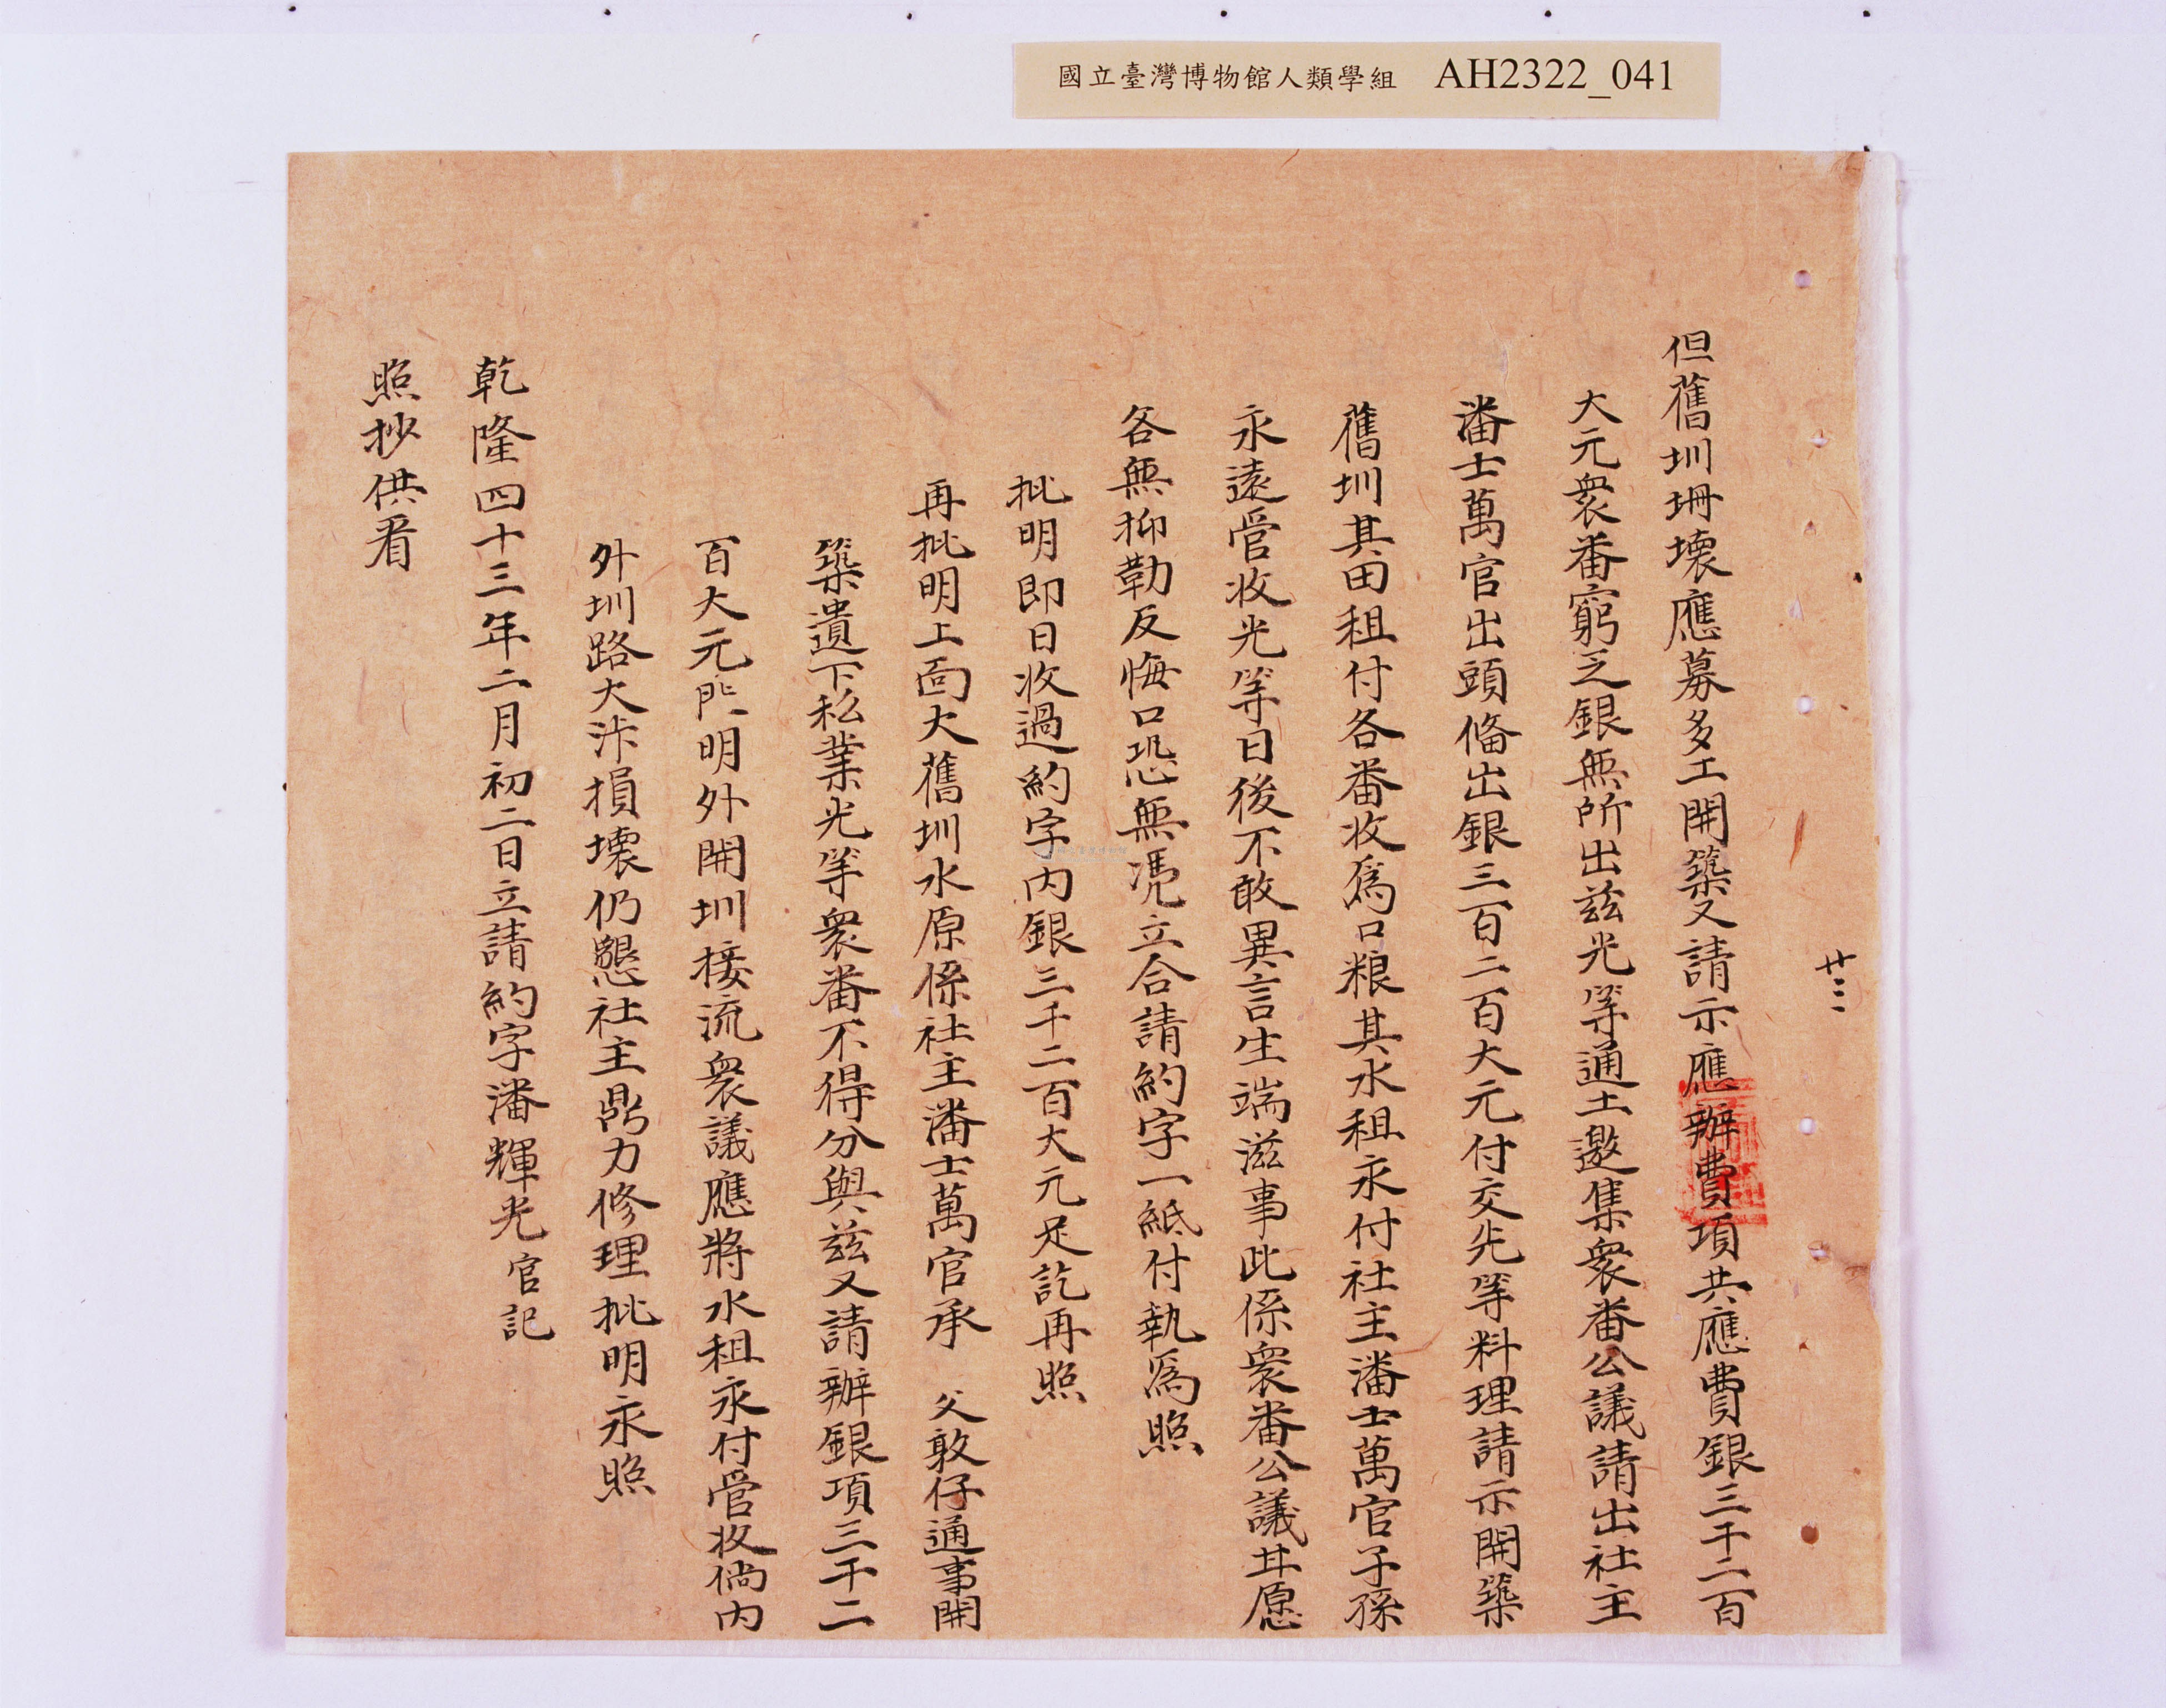 國立臺灣博物館人類學組 AH2322_041
廿三
但舊圳坍壞應募多工開築又請示應辦費項共應費銀三千二百
大元衆番窮乏銀無所出茲光等通土邀集衆番公議請出社主
潘士萬官出頭俻出銀三百二百大元付交光等料理請示開築
舊圳其田租付各番收爲口粮其水租永付社主潘士萬官子孫
永遠管收光等日後不敢異言生端滋事此係衆番公議甘愿
各無抑勒反悔口恐無凴立合請約字一紙付執爲照
批明即日收過約字內銀三千二百大元足訖再照
再批明上面大舊圳水原係社主潘士萬官承 父敦仔通事開
築遺下私業光等衆番不得分與茲又請辦銀項三千二
百大元明外開圳接流衆議應將水租永付管收倘內
外圳路大汴損壞仍懇社主鼎力修理批明永照
乾隆四十三年二月初二日立請約字潘輝光官記
照抄供看